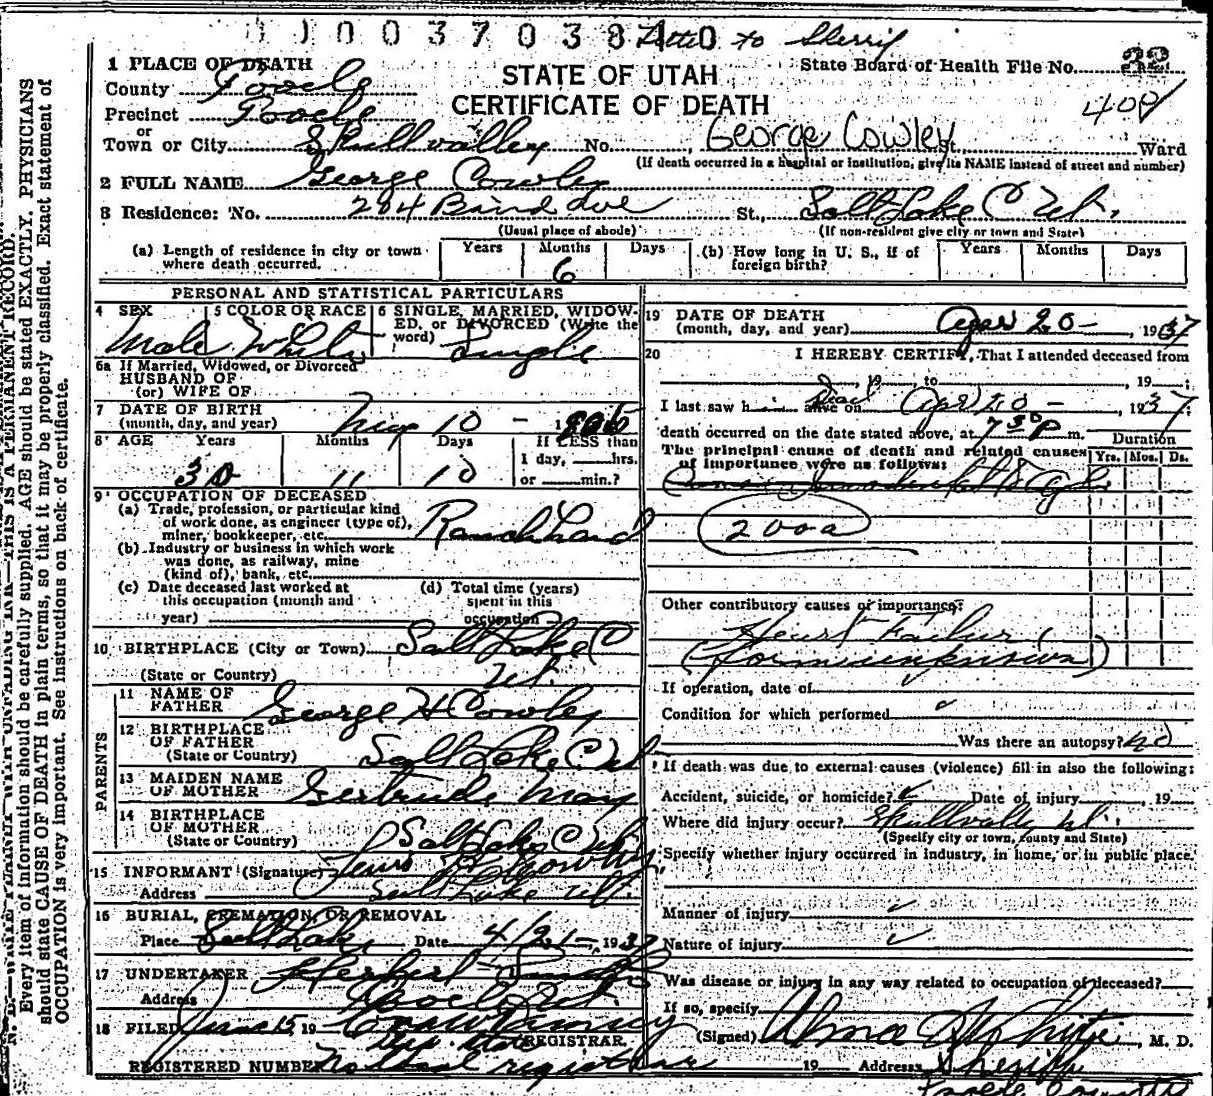 0 0 0 3 7 0 3 8 0
to Sherrif
1 PLACE OF DEATH
STATE OF UTAH
CERTIFICATE OF DEATH
State Board of Health File No. 22
408
County Tooele
Precinct Tooele
or
Town or City Skull valley No. George Cowley St. Ward
(If death occurred in a hospital or institution, give its NAME instead of street and number)
2 FULL NAME George Cowley
3 Residence: No. 284 Baird Ave St., Salt Lake C Ut.
(Usual place of abode) (If non-resident give city or town and State)
(a) Length of residence in city or town where death occurred. Years Months 6 Days
(b) How long in U. S., if of foreign birth? Years Months Days
PERSONAL AND STATISTICAL PARTICULARS
4 SEX Male
5 COLOR OR RACE White
6 SINGLE, MARRIED, WIDOWED, or DIVORCED (Write the word) Single
6a If Married, Widowed, or Divorced
HUSBAND OF
(or) WIFE OF
7 DATE OF BIRTH
(month, day, and year) May 10 -
8 AGE Years Months Days If LESS than
30 11 10 1 day, hrs.
or min.?
9 OCCUPATION OF DECEASED
(a) Trade, profession, or particular kind
of work done, as engineer (type of),
miner, bookkeeper, etc. Ranch hand
(b) Industry or business in which work
was done, as railway, mine
(kind of), bank, etc.
(c) Date deceased last worked at
this occupation (month and
year)
(d) Total time (years)
spent in this
occupation
10 BIRTHPLACE (City or Town) Salt Lake C
(State or Country) Ut.
PARENTS
11 NAME OF
FATHER George H Cowley
12 BIRTHPLACE
OF FATHER
(State or Country) Salt Lake C Ut
13 MAIDEN NAME
OF MOTHER Gertrude May
14 BIRTHPLACE
OF MOTHER
(State or Country) Salt Lake C Ut
15 INFORMANT (Signature) Cowley
Address Salt Lake Ut.
16 BURIAL, CREMATION, OR REMOVAL
Place Salt Lake Date 4/21-, 1937
17 UNDERTAKER Herbert
Address Tooele Ut.
18 FILED June 15, 19
Dep. State REGISTRAR.
REGISTERED NUMBER No local registrar
19 DATE OF DEATH
(month, day, and year) Apr 20-, 1937
20 I HEREBY CERTIFY, That I attended deceased from
, 19 to , 19 ;
I last saw him dead alive on Apr 20 -, 1937;
death occurred on the date stated above, at 7 30 P m.
The principal cause of death and related causes
of importance were as follows:
Duration
Yrs. Mos. Ds.
200a
Other contributory causes of importance:
Heart Failure
(form unknown)
If operation, date of
Condition for which performed
Was there an autopsy? no
If death was due to external causes (violence) fill in also the following:
Accident, suicide, or homicide? Date of injury , 19
Where did injury occur? Skull valley Ut.
(Specify city or town, county and State)
Specify whether injury occurred in industry, in home, or in public place.
Manner of injury
Nature of injury
Was disease or injury in any way related to occupation of deceased?
If so, specify
(Signed) Alma White, M. D.
19 Address Sheriff
Tooele County
Every item of information should be carefully supplied. AGE should be stated EXACTLY. PHYSICIANS
should state CAUSE OF DEATH in plain terms, so that it may be properly classified. Exact statement of
OCCUPATION is very important. See instructions on back of certificate.